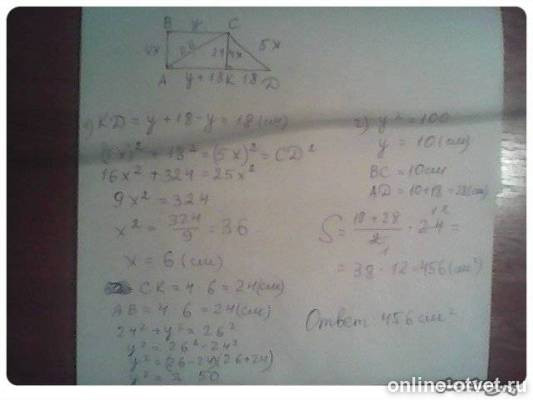 B y C
4x 26 24 4x 5x
A y+18 K 18 D
KD = y + 18 - y = 18 (см)
(4x)² + 18² = (5x)² = CD²
16x² + 324 = 25x²
9x² = 324
x² = 324/9 = 36
x = 6 (см)
CK = 4 · 6 = 24 (см)
AB = 4 · 6 = 24 (см)
24² + y² = 26²
y² = 26² - 24²
y² = (26-24)(26+24)
y² = 2 · 50
2) y² = 100
y = 10 (см)
BC = 10 см
AD = 10 + 18 = 28 (см)
S = (10 + 28)/2 · 24 =
= 38 · 12 = 456 (см²)
Ответ 456 см²
online-otvet.ru